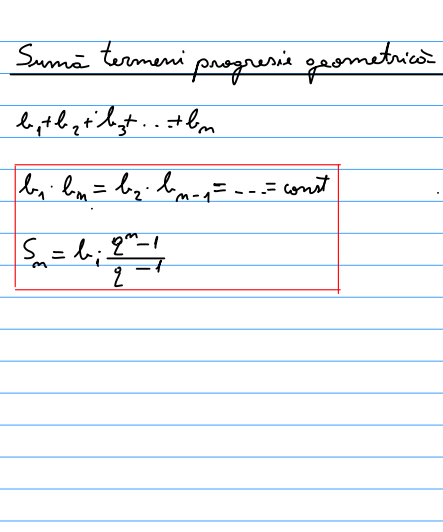 Sumă termeni progresie geometrică
b₁+b₂+b₃+...+bₙ
b₁·bₙ = b₂·bₙ₋₁ = ---= const
Sₙ = b₁ (qⁿ-1)/(q-1)